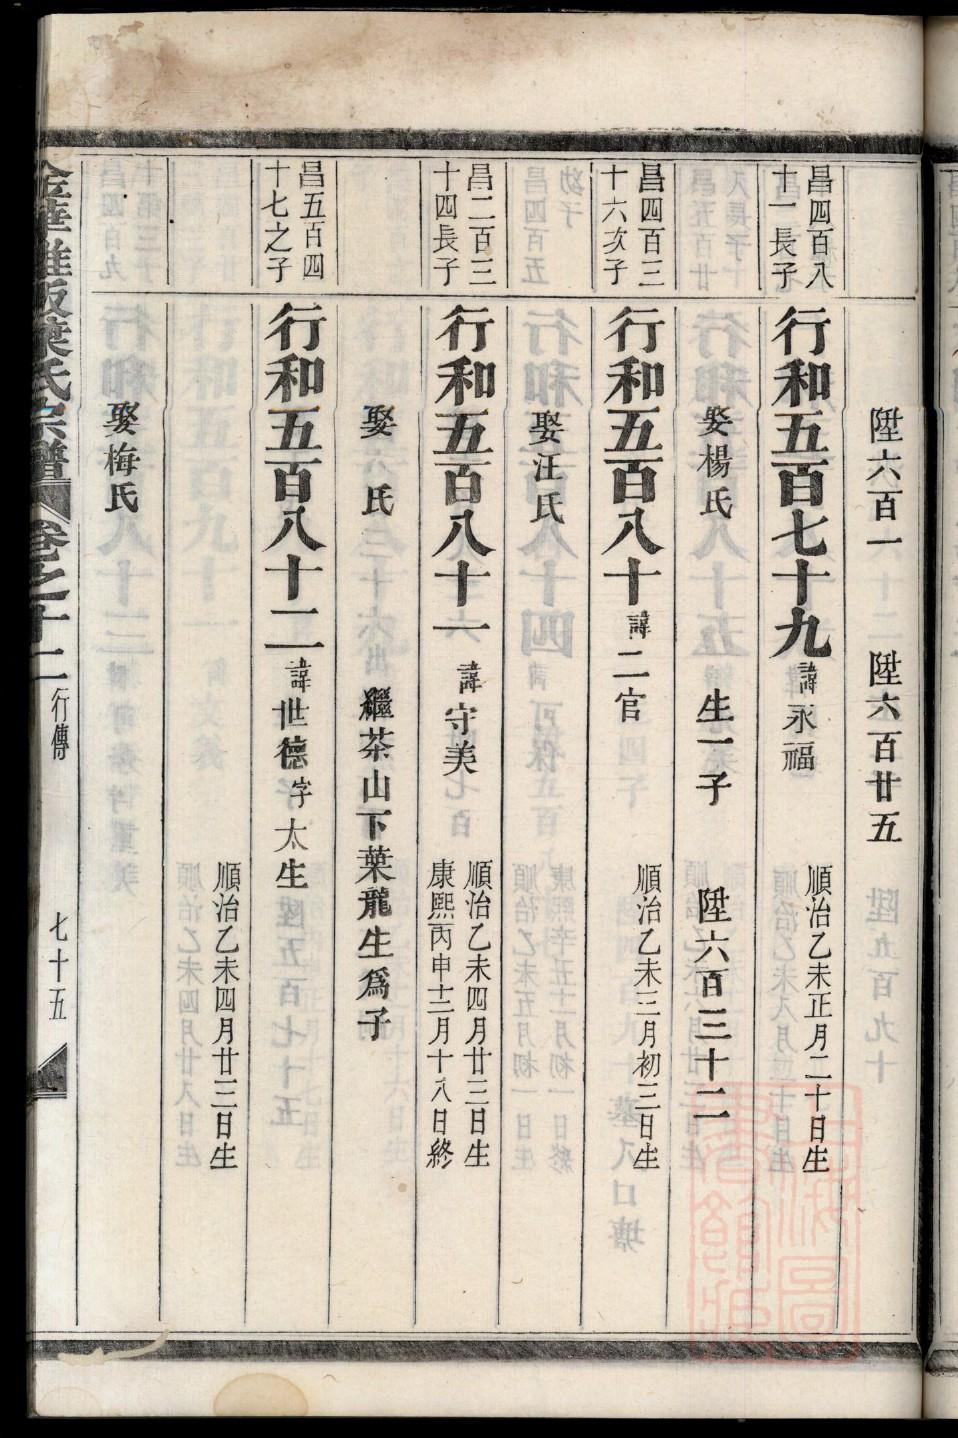 陞六百一　陞六百廿五
昌四百八
十一長子
行和五百七十九　諱永福　順治乙未正月二十日生
娶楊氏　生一子　陞六百三十二
昌四百三
十六次子
行和五百八十　諱二官　順治乙未三月初三日生
娶汪氏
昌二百三
十四長子
行和五百八十一　諱守美　順治乙未四月廿三日生
康熙丙申十二月十八日終
娶　氏　繼茶山下葉龍生爲子
昌五百四
十七之子
行和五百八十二　諱世德字太生　順治乙未四月廿三日生
娶梅氏
葉氏宗譜　卷之十二　行傳　七十五